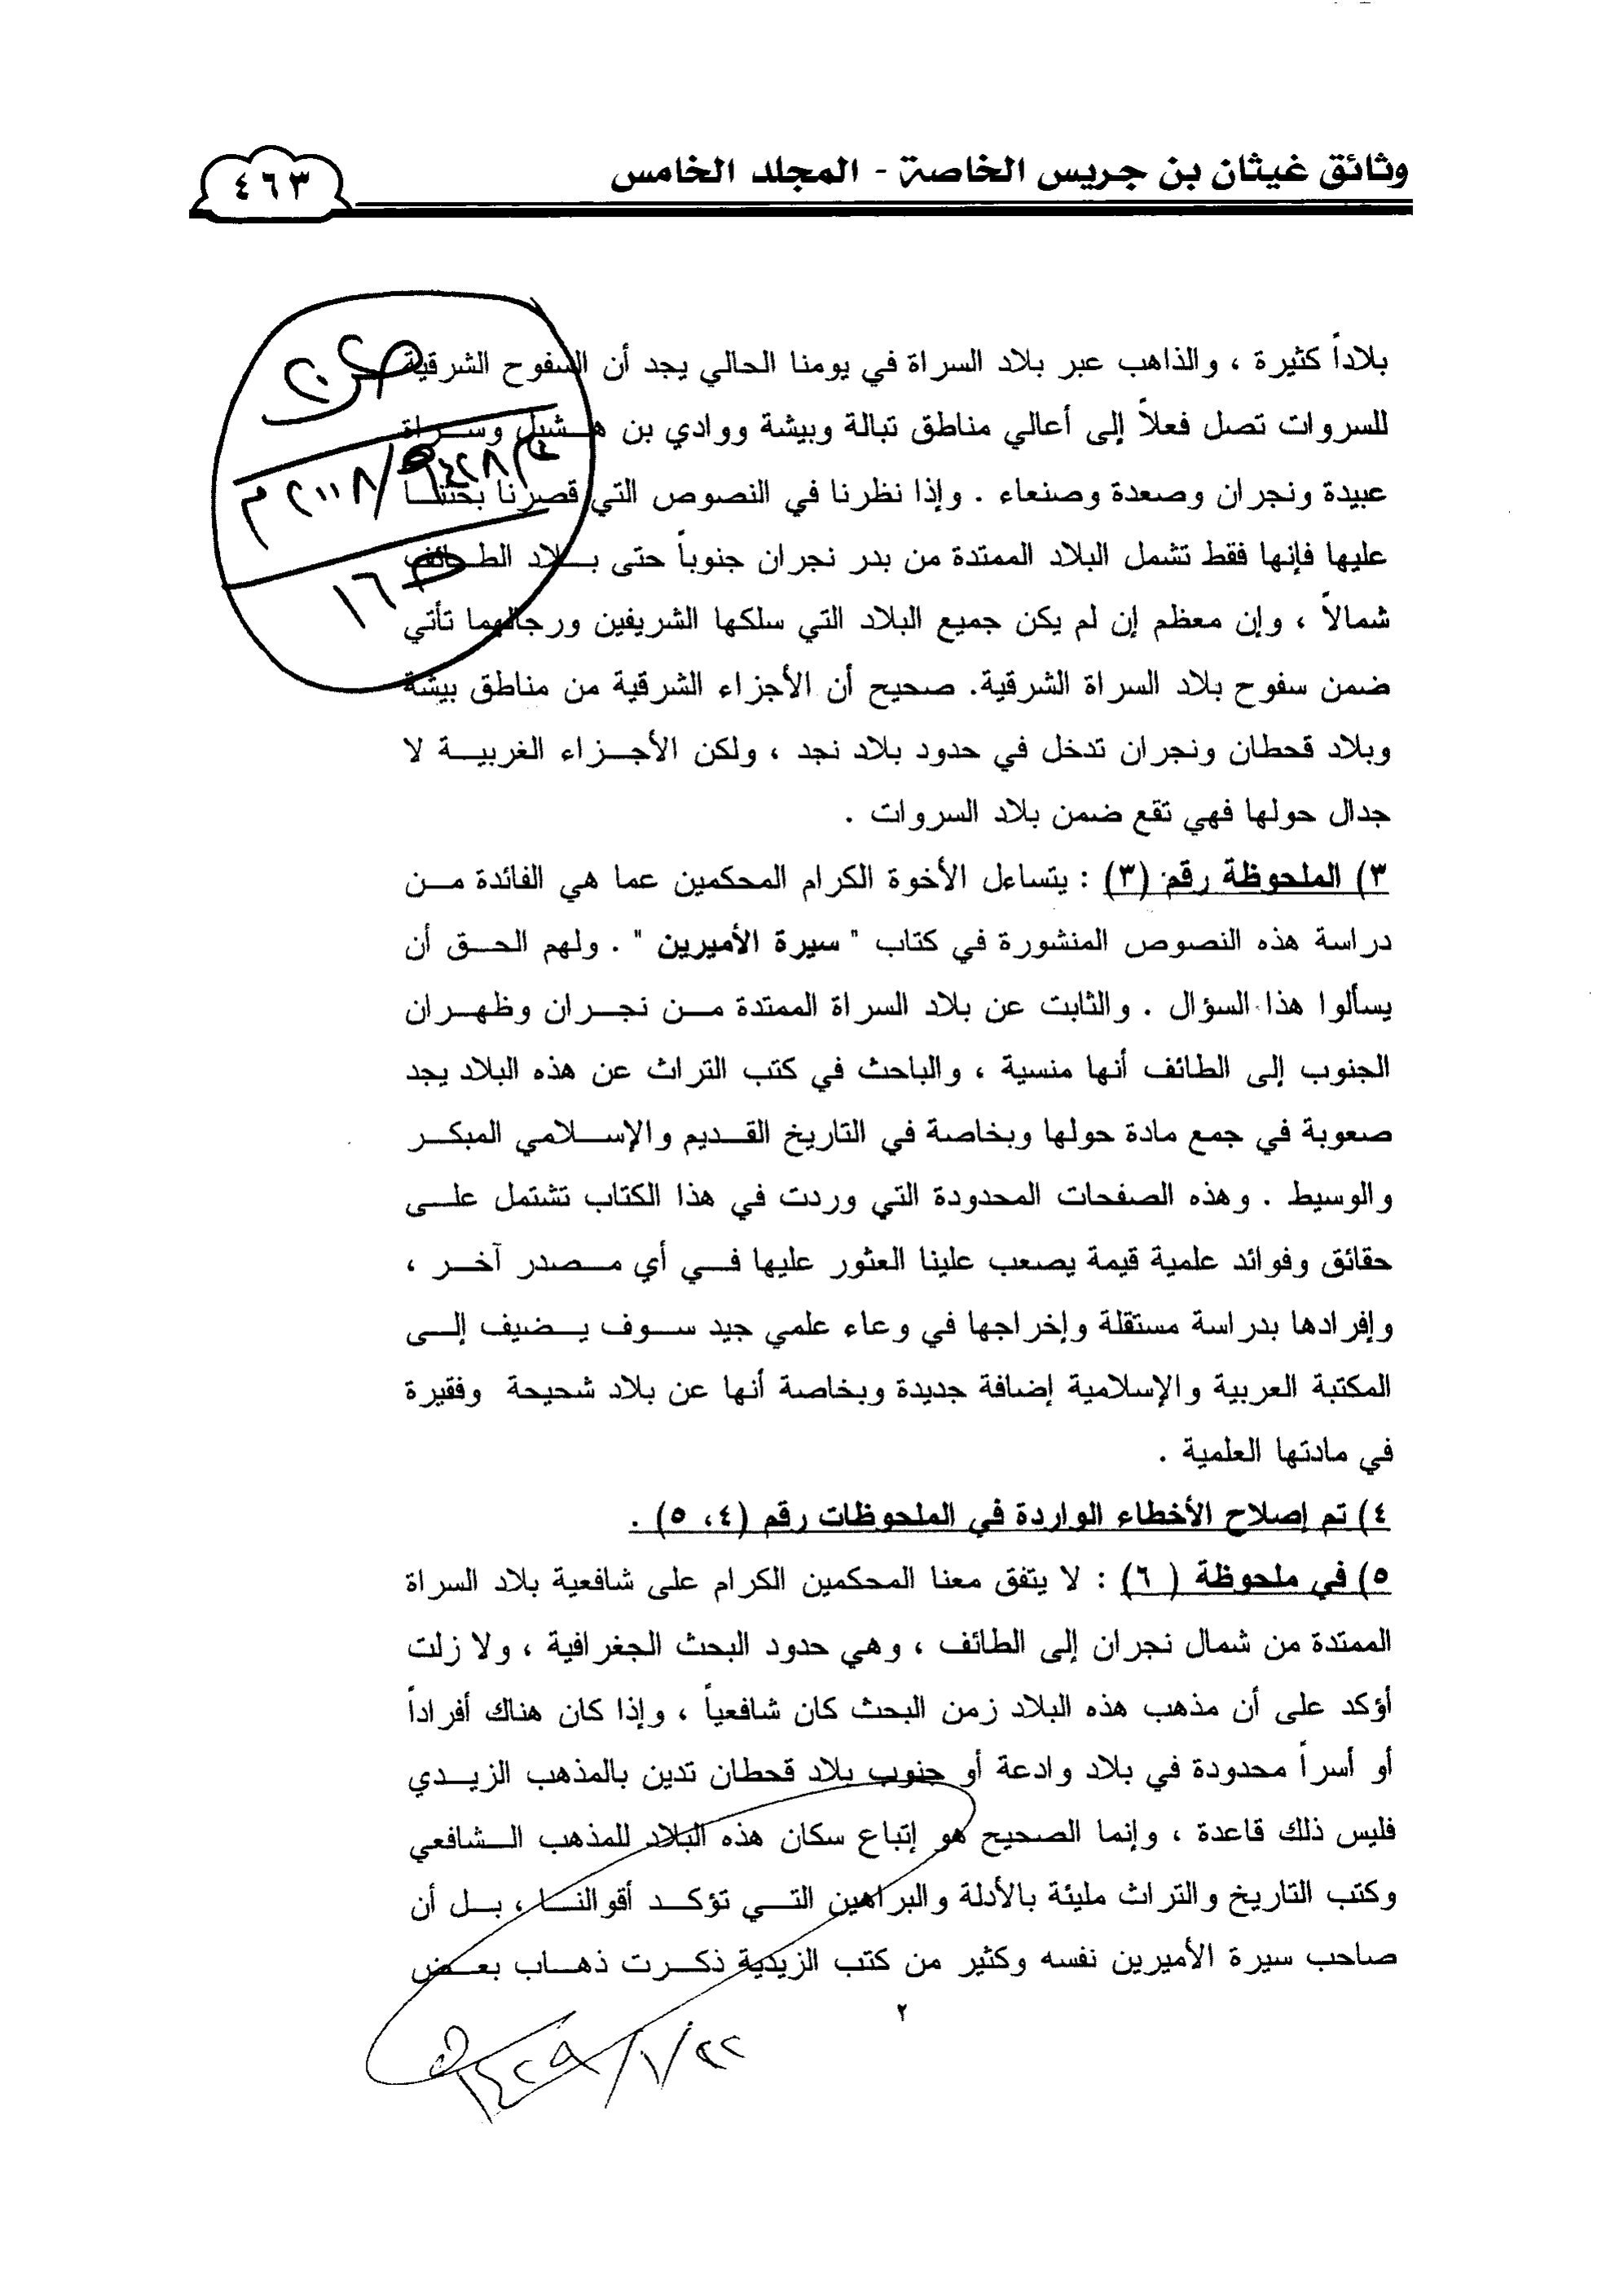 وثائق غيثان بن جريس الخاصة - المجلد الخامس
٤٦٣
بلاداً كثيرة ، والذاهب عبر بلاد السراة في يومنا الحالي يجد أن السفوح الشرقية
للسروات تصل فعلاً إلى أعالي مناطق تبالة وبيشة ووادي بن هشبل وسراة
عبيدة ونجران وصعدة وصنعاء . وإذا نظرنا في النصوص التي قصرنا بحثنا
عليها فإنها فقط تشمل البلاد الممتدة من بدر نجران جنوباً حتى بلاد الطائف
شمالاً ، وإن معظم إن لم يكن جميع البلاد التي سلكها الشريفين ورجالهما تأتي
ضمن سفوح بلاد السراة الشرقية. صحيح أن الأجزاء الشرقية من مناطق بيشة
وبلاد قحطان ونجران تدخل في حدود بلاد نجد ، ولكن الأجزاء الغربية لا
جدال حولها فهي تقع ضمن بلاد السروات .
٣) الملحوظة رقم (٣) : يتساءل الأخوة الكرام المحكمين عما هي الفائدة من
دراسة هذه النصوص المنشورة في كتاب " سيرة الأميرين " . ولهم الحق أن
يسألوا هذا السؤال . والثابت عن بلاد السراة الممتدة من نجران وظهران
الجنوب إلى الطائف أنها منسية ، والباحث في كتب التراث عن هذه البلاد يجد
صعوبة في جمع مادة حولها وبخاصة في التاريخ القديم والإسلامي المبكر
والوسيط . وهذه الصفحات المحدودة التي وردت في هذا الكتاب تشتمل على
حقائق وفوائد علمية قيمة يصعب علينا العثور عليها في أي مصدر آخر ،
وإفرادها بدراسة مستقلة وإخراجها في وعاء علمي جيد سوف يضيف إلى
المكتبة العربية والإسلامية إضافة جديدة وبخاصة أنها عن بلاد شحيحة وفقيرة
في مادتها العلمية .
٤) تم إصلاح الأخطاء الواردة في الملحوظات رقم (٤، ٥) .
٥) في ملحوظة ( ٦) : لا يتفق معنا المحكمين الكرام على شافعية بلاد السراة
الممتدة من شمال نجران إلى الطائف ، وهي حدود البحث الجغرافية ، ولا زلت
أؤكد على أن مذهب هذه البلاد زمن البحث كان شافعياً ، وإذا كان هناك أفراداً
أو أسراً محدودة في بلاد وادعة أو جنوب بلاد قحطان تدين بالمذهب الزيدي
فليس ذلك قاعدة ، وإنما الصحيح هو إتباع سكان هذه البلاد للمذهب الشافعي
وكتب التاريخ والتراث مليئة بالأدلة والبراهين التي تؤكد أقوالنا ، بل أن
صاحب سيرة الأميرين نفسه وكثير من كتب الزيدية ذكرت ذهاب بعض
٢
٢٢/١/١٤٢٩هـ